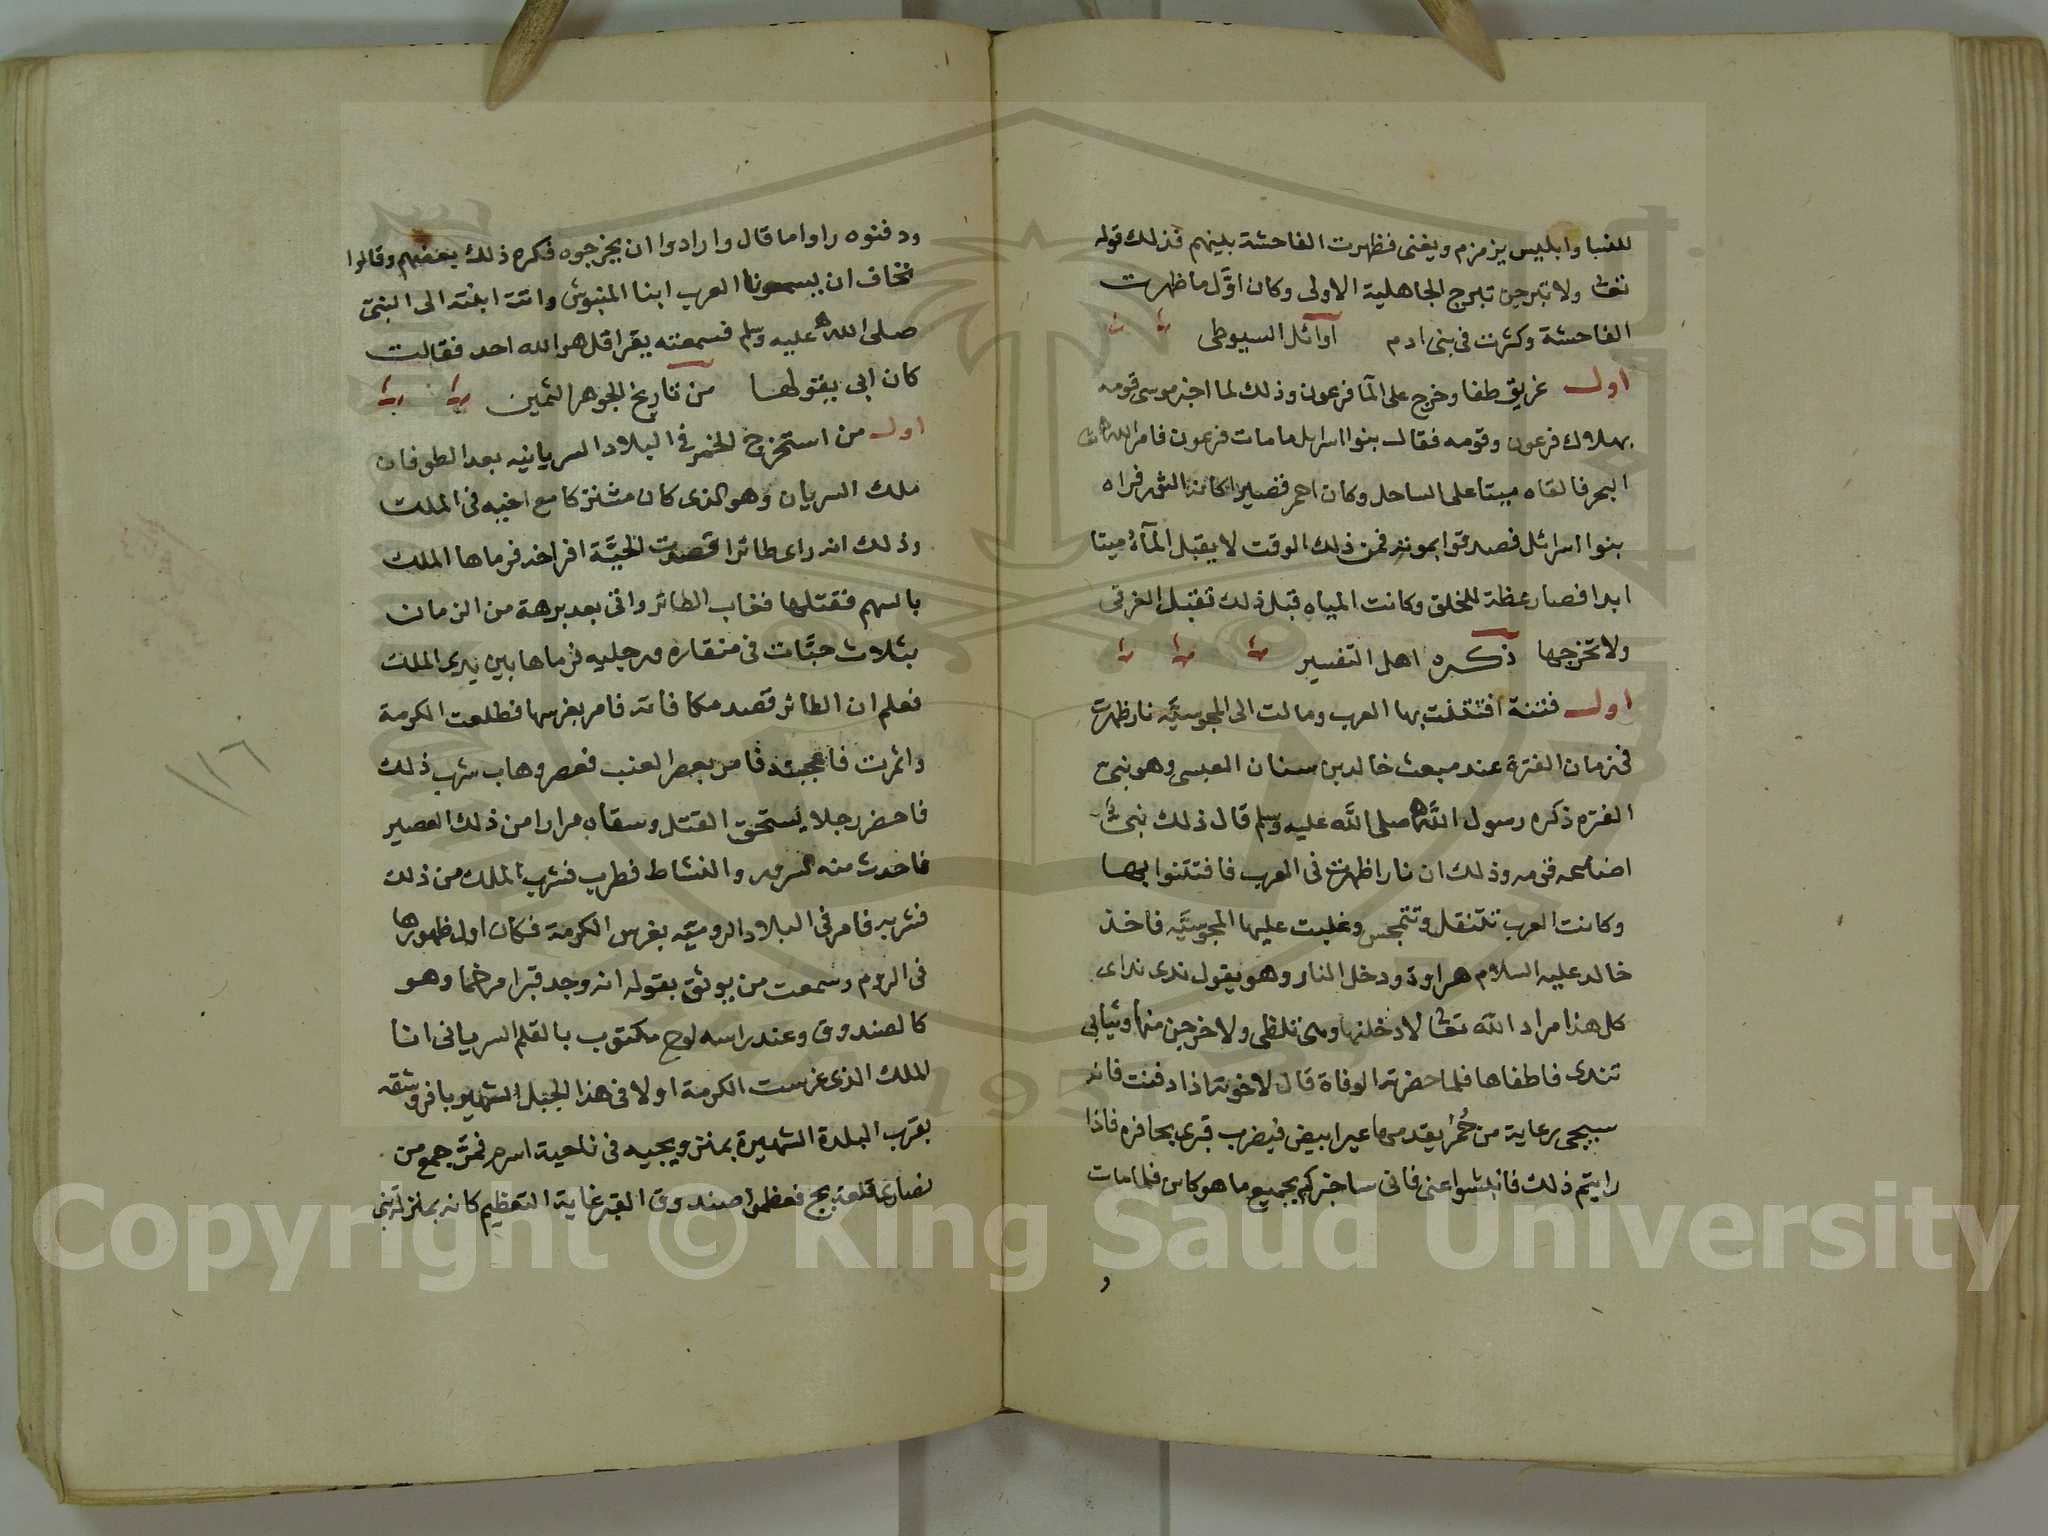 للنسا وابليس يزمزم ويغنى فظهرت الفاحشة بينهم فذلك قوله
تعا ولا تبرجن تبرج الجاهلية الاولى وكان اوَّل ما ظهرت
الفاحشة وكثرت فى بنى ادم اوائل السيوطى
اول غريق طفا وخرج على المآ فرعون وذلك لما اخبر موسى قومه
بهلاك فرعون وقومه فقال بنوا اسرايل ما مات فرعون فامر الله تعا
البحر فالقاه ميتا على الساحل وكان احمر قصيرا كانه الثور فراه
بنوا اسرائل فصدقوا بموته فمن ذلك الوقت لا يقبل المآء ميتا
ابدا فصار عظة للخلق وكانت المياه قبل ذلك تقبل الغرقى
ولا تخرجها ذكره اهل التفسير
اول فتنة افتتنت بها العرب ومالت الى المجوسيَّه نار ظهرت
فى زمان الفترة عند مبعث خالد بن سنان العبسى وهو نبىّ
الفتره ذكره رسول اللّه صلى اللَّه عليه وسلم قال ذلك نبىّ
اضاعه قومه وذلك ان نارا ظهرت فى العرب فافتتنوا بها
وكانت العرب تتنقل وتتمجس وغلبت عليها المجوسيَّه فاخذ
خالد عليه السلام هراوة ودخل النار وهو يقول ندى نداى
كل هذا مراد اللّه تعا لا دخلنها وهى تلظى ولا خرجن منها وثيابى
تندى فاطفاها فلما حضرته الوفاة قال لاخوته اذا دفنت فانه
سيجى رعاية من حُمُر يقدمها عيرا بيض فيضرب قبرى بحافره فاذا
رايتم ذلك فانبشوا عنى فانى ساخبركم بجميع ما هو كاين فلما مات
و
ودفنوه راوا ما قال وارادوا ان يخرجوه فكره ذلك بعضهم وقالوا
نخاف ان يسمونا العرب ابنا المنبوش واتت ابنته الى النبىّ
صلى اللّه عليه وسلم فسمعته يقرا قل هو الله احد فقالت
كان ابى يقولها من تاريخ الجوهر الثمين
اول من استخرج الخمر فى البلاد السريانيه بعد الطوفان
ملك السريان وهو الذى كان مشتركا مع اخيه فى الملك
وذلك انه راى طائرا قصدت الحيَّة افراخه فرماها الملك
بالسهم فقتلها فغاب الطائر واتى بعد برهة من الزمان
بثلاث حبَّات فى منقاره ورجليه فرماها بين يدى الملك
فعلم ان الطائر قصد مكافاته فامر بغرسها فطلعت الكرمة
واثمرت فاعجبته فامر بعصر العنب فعصروها ب شرب ذلك
فاحضر رجلا يستحق القتل وسقاه مرارا من ذلك العصير
فاحدث منه السرور والنشاط فطرب فشرب الملك من ذلك
فشربه فامر فى البلاد الروميَّه بغرس الكرمة فكان اول ظهورها
فى الروم وسمعت من يوثق بقوله انه وجد قبرا مرخما وهو
كالصندوق وعند راسه لوح مكتوب بالقلم السريانى انا
الملك الذى غرست الكرمة اولا فى هذا الجبل الشهير بافروشقه
بقرب البلدة الشهيرة بمنزويجيه فى ناحية اسرم فمرَّ جمع من
نصارى قلعة بج فعظموا صندوق القبر غاية التعظيم كانه بمنزلة نبى
١١٦